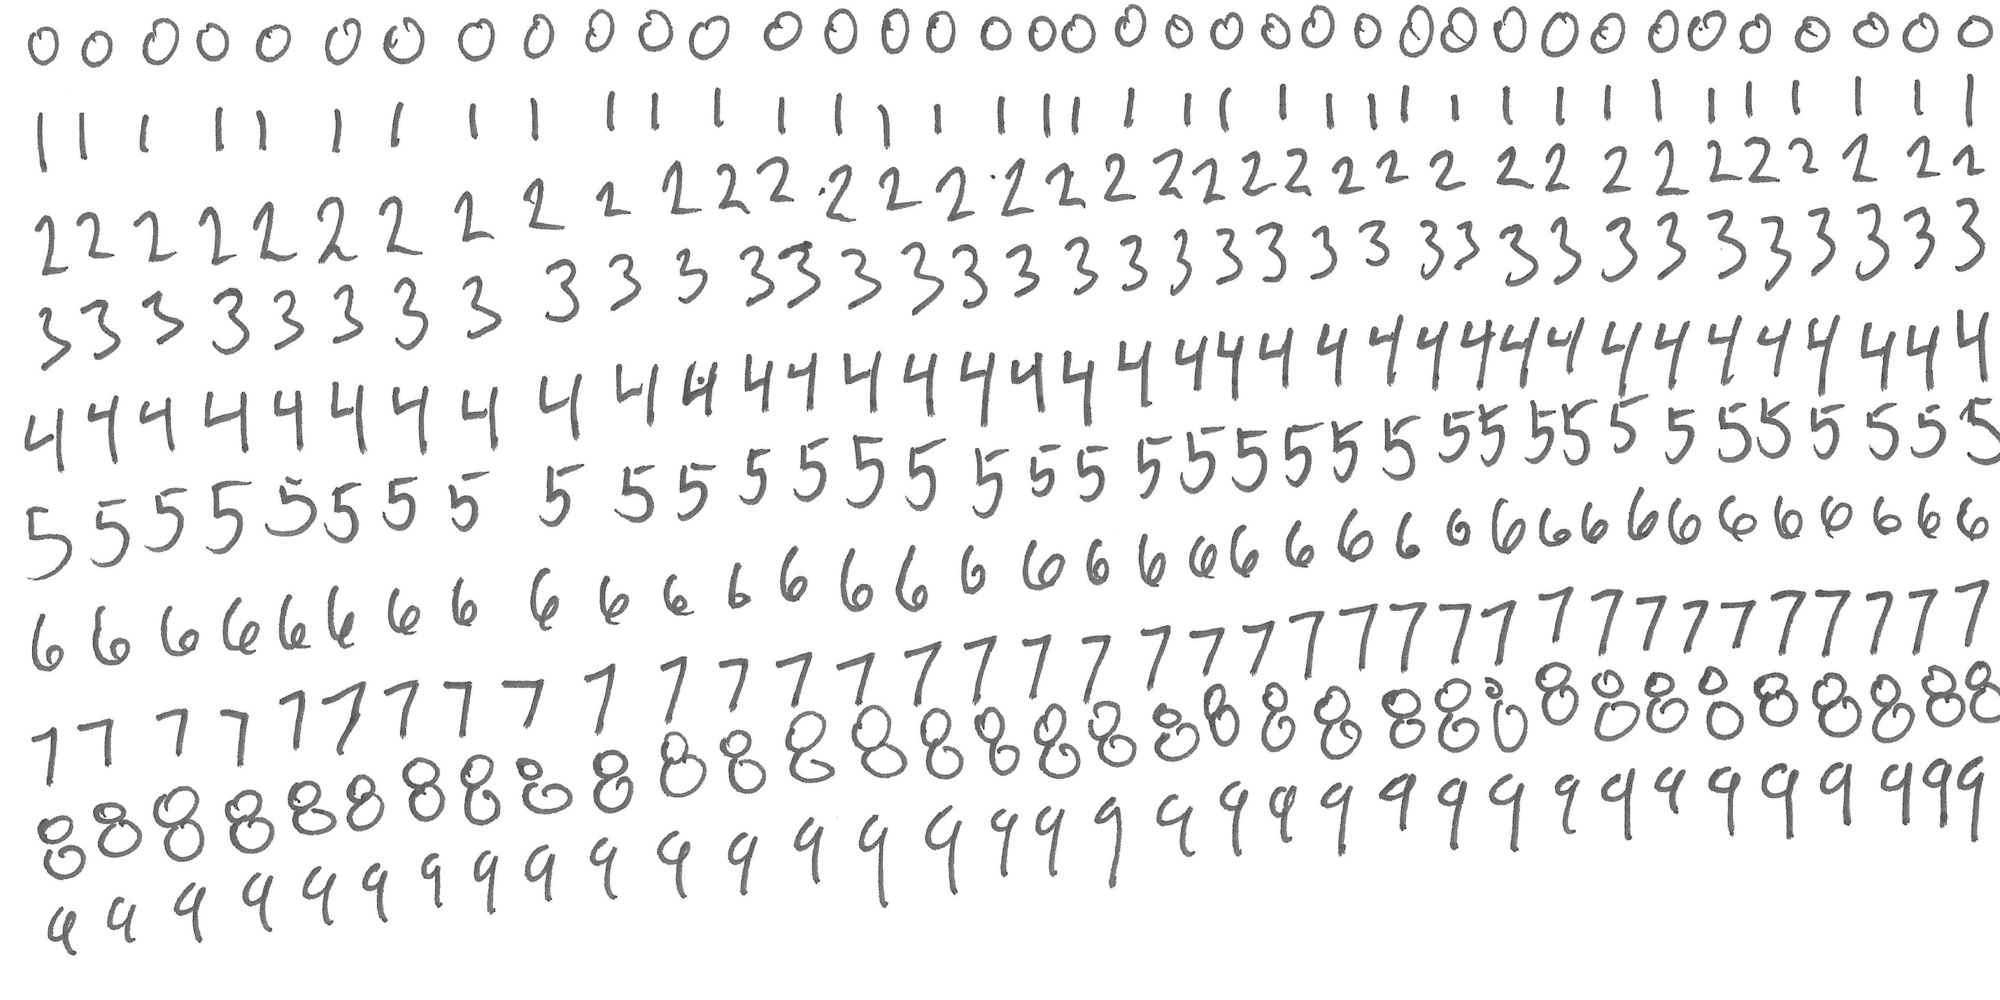 0 0 0 0 0 0 0 0 0 0 0 0 0 0 0 0 0 0 0 0 0 0 0 0 0 0 0 0 0 0 0 0 0 0 0 0 0
1 1 1 1 1 1 1 1 1 1 1 1 1 1 1 1 1 1 1 1 1 1 1 1 1 1 1 1 1 1 1 1 1 1 1 1 1
2 2 2 2 2 2 2 2 2 2 2 2 2 2 2 2 2 2 2 2 2 2 2 2 2 2 2 2 2 2 2 2 2 2 2 2
3 3 3 3 3 3 3 3 3 3 3 3 3 3 3 3 3 3 3 3 3 3 3 3 3 3 3 3 3 3 3 3 3 3 3 3
4 4 4 4 4 4 4 4 4 4 4 4 4 4 4 4 4 4 4 4 4 4 4 4 4 4 4 4 4 4 4 4 4 4 4 4
5 5 5 5 5 5 5 5 5 5 5 5 5 5 5 5 5 5 5 5 5 5 5 5 5 5 5 5 5 5 5 5 5 5 5 5
6 6 6 6 6 6 6 6 6 6 6 6 6 6 6 6 6 6 6 6 6 6 6 6 6 6 6 6 6 6 6 6 6 6 6 6
7 7 7 7 7 7 7 7 7 7 7 7 7 7 7 7 7 7 7 7 7 7 7 7 7 7 7 7 7 7 7 7 7 7 7 7
8 8 8 8 8 8 8 8 8 8 8 8 8 8 8 8 8 8 8 8 8 8 8 8 8 8 8 8 8 8 8 8 8 8
9 9 9 9 9 9 9 9 9 9 9 9 9 9 9 9 9 9 9 9 9 9 9 9 9 9 9 9 9 9 9 9 9 9